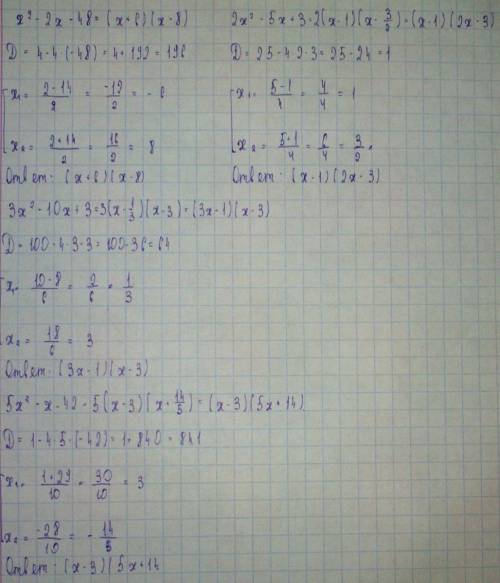 x² - 2x - 48 = (x+6)(x-8)
D = 4 - 4·(-48) = 4 + 192 = 196
x₁ = (2-14)/2 = -12/2 = -6
x₂ = (2+14)/2 = 16/2 = 8
Ответ: (x+6)(x-8)
2x² - 5x + 3 = 2(x-1)(x - 3/2) = (x-1)(2x-3)
D = 25 - 4·2·3 = 25 - 24 = 1
x₁ = (5-1)/4 = 4/4 = 1
x₂ = (5+1)/4 = 6/4 = 3/2.
Ответ: (x-1)(2x-3)
3x² - 10x + 3 = 3(x - 1/3)(x-3) = (3x-1)(x-3)
D = 100 - 4·3·3 = 100 - 36 = 64
x₁ = (10-8)/6 = 2/6 = 1/3
x₂ = 18/6 = 3
Ответ: (3x-1)(x-3)
5x² - x - 42 = 5(x-3)(x + 14/5) = (x-3)(5x+14)
D = 1 - 4·5·(-42) = 1 + 840 = 841
x₁ = (1+29)/10 = 30/10 = 3
x₂ = -28/10 = - 14/5
Ответ: (x-3)(5x+14